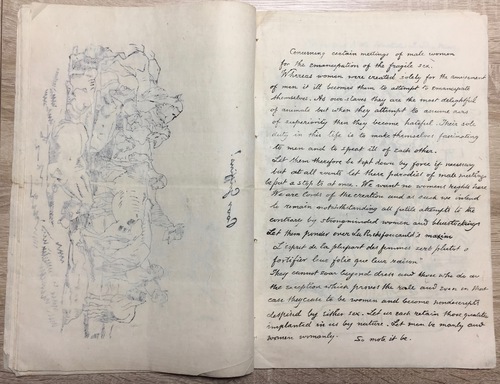 Concerning certain meetings of male women
for the emancipation of the fragile sex.
Whereas women were created solely for the amusement
of man it ill becomes them to attempt to emancipate
themselves. As our slaves they are the most delightful
of animals but when they attempt to assume airs
of superiority then they become hateful. Their sole
duty in this life is to make themselves fascinating
to men and to speak ill of each other.
Let them therefore be kept down by force if necessary
but at all events let these parodies of male meetings
be put a stop to at once. We want no womens rights here
We are lords of the creation and as such we intend
to remain notwithstanding all futile attempts to the
contrary by strongminded women and bluestockings
Let them ponder over La Rochefoucauld's maxim
L'esprit de la plupart des femmes sert plutôt à
fortifier leur folie que leur raison
They cannot soar beyond dress and those who do are
the exception which proves the rule and even in that
case they cease to be women and become nondescripts
despised by either sex. Let us each retain those qualities
implanted in us by nature. Let men be manly and
women womanly. So mote it be.